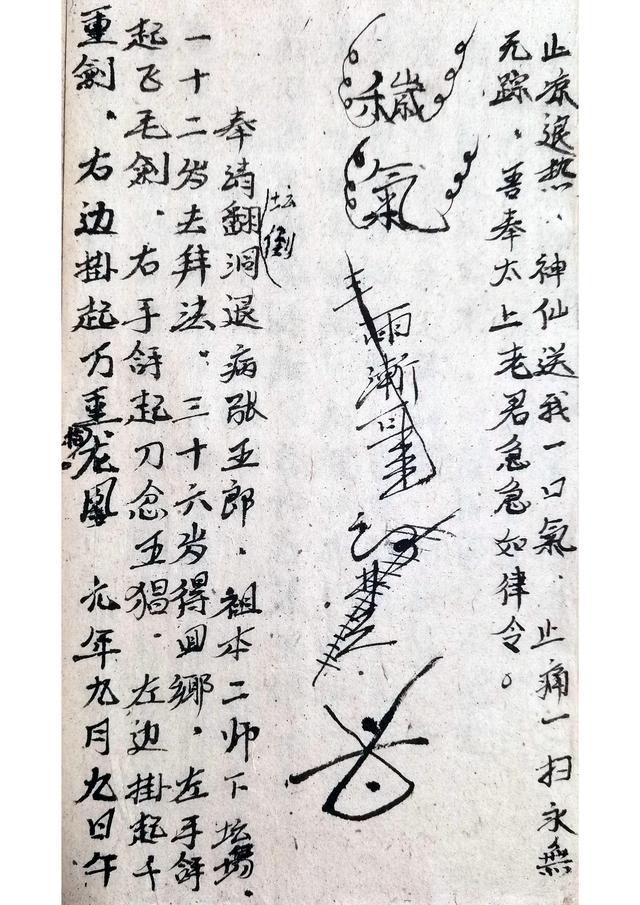 止凉退热、神仙送我一口氣．止痛一扫永無
无踪．吾奉太上老君急急如律令。
穢
氣
雨漸
奉請翻洞退病张五郎．祖本二师下坛場．
坛倒
一十二岁去拜法．三十六岁得回鄉．左手
起飞毛劍．右手起刀念五猖．左边掛起千
重劍．右边掛起万重龙鳳 元年九月九日午